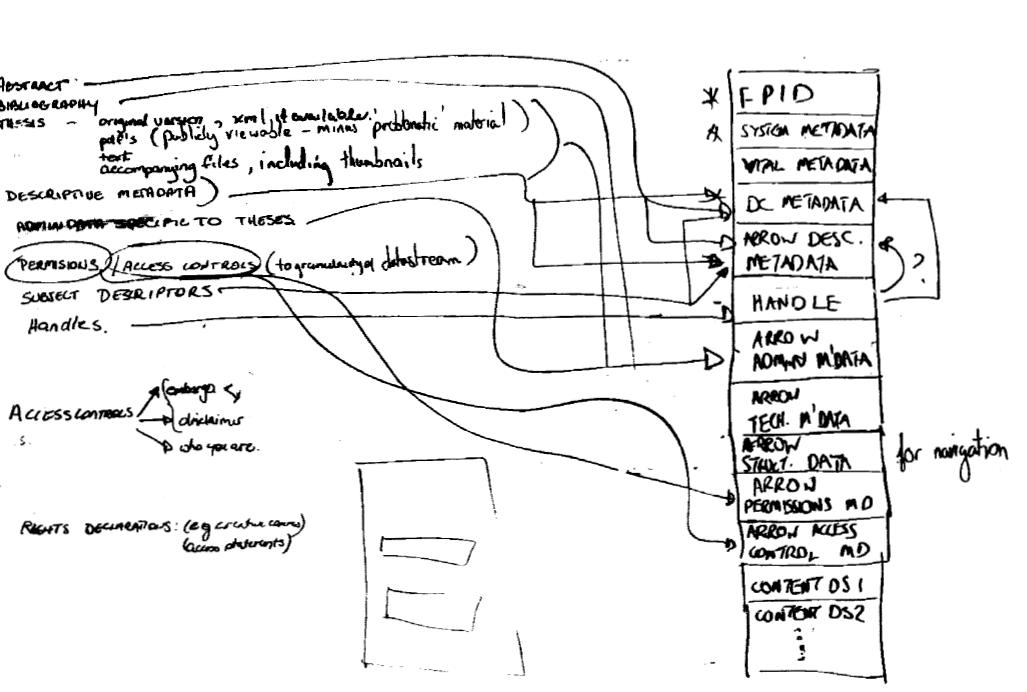 ABSTRACT
BIBLIOGRAPHY
THESIS - original version, xml if available.
pdf's (publicly viewable - minus 'problematic' material)
text
accompanying files, including thumbnails
DESCRIPTIVE METADATA)
ADMIN DATA SPECIFIC TO THESES
PERMISIONS / ACCESS CONTROLS (to granularity of datastream)
SUBJECT DESCRIPTORS
Handles.
ACCESS CONTROLS
embargo
disclaimer
who you are.
RIGHTS DECLARATIONS: (eg creative
(access statements)
FPID
SYSTEM METADATA
VITAL METADATA
DC METADATA
ARROW DESC.
METADATA
?
HANDLE
ARROW
ADMIN M'DATA
ARROW
TECH. M'DATA
ARROW
STRUCT. DATA
for navigation
ARROW
PERMISSIONS MD
ARROW ACCESS
CONTROL MD
CONTENT DS1
CONTENT DS2